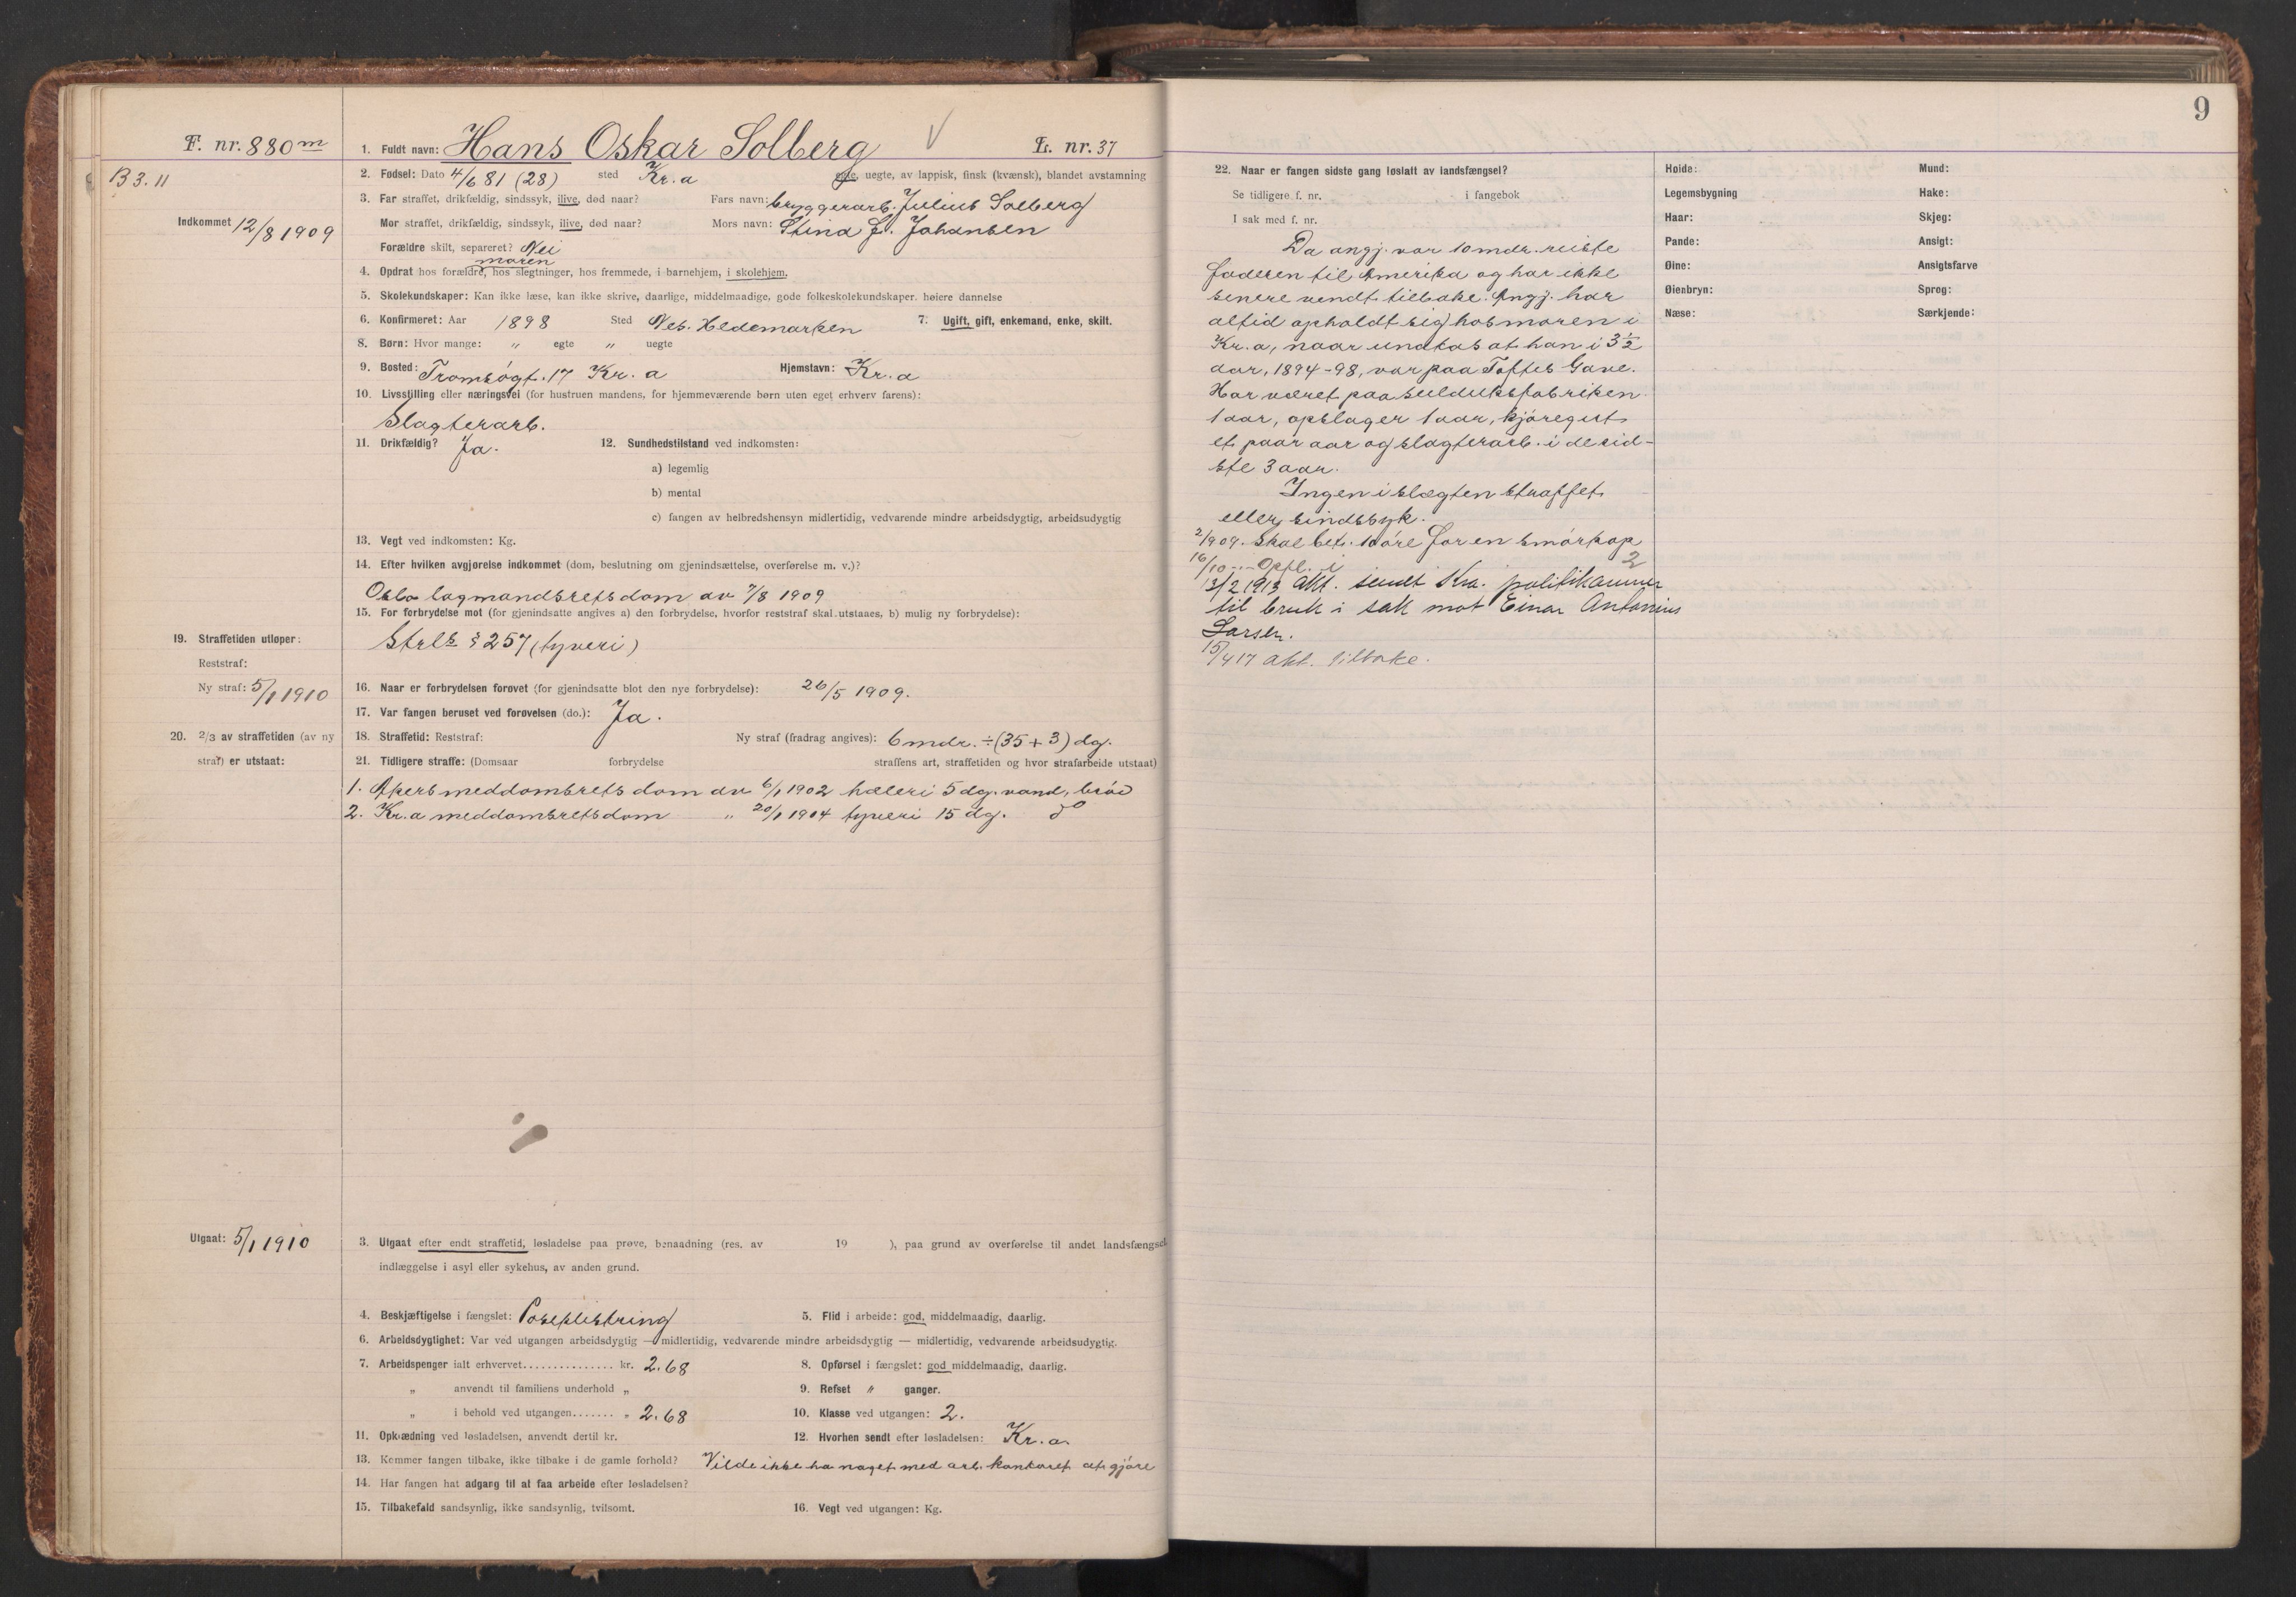 F. nr. 880 m
1. Fuldt navn: Hans Oskar Solberg V L. nr. 37
B 3. 11
2. Fødsel: Dato 4/6 81 (28) sted Kr.a egte, uegte, av lappisk, finsk (kvænsk), blandet avstamning
3. Far straffet, drikfældig, sindssyk, ilive, død naar? Fars navn: bryggerarb. Julius Solberg
Indkommet 12/8 1909
Mor straffet, drikfældig, sindssyk, ilive, død naar? Mors navn: Stina J. Johansen
Forældre skilt, separeret? Nei
moren
4. Opdrat hos forældre, hos slegtninger, hos fremmede, i barnehjem, i skolehjem.
5. Skolekundskaper: Kan ikke læse, kan ikke skrive, daarlige, middelmaadige, gode folkeskolekundskaper. høiere dannelse
6. Konfirmeret: Aar 1898 Sted Nes. Hedemarken 7. Ugift, gift, enkemand, enke, skilt.
8. Børn: Hvor mange: " egte " uegte
9. Bosted: Tromsøgt. 17 Kr.a Hjemstavn: Kr.a
10. Livsstilling eller næringsvei (for hustruen mandens, for hjemmeværende børn uten eget erhverv farens):
Slagterarb.
11. Drikfældig? Ja. 12. Sundhedstilstand ved indkomsten:
a) legemlig
b) mental
c) fangen av helbredshensyn midlertidig, vedvarende mindre arbeidsdygtig, arbeidsudygtig
13. Vegt ved indkomsten: Kg.
14. Efter hvilken avgjørelse indkommet (dom, beslutning om gjenindsættelse, overførelse m. v.)?
Oslo lagmandsretsdom av 7/8 1909
15. For forbrydelse mot (for gjenindsatte angives a) den forbrydelse, hvorfor reststraf skal utstaaes, b) mulig ny forbrydelse):
19. Straffetiden utløper:
Strls § 257 (tyveri)
Reststraf:
Ny straf: 5/1 1910
16. Naar er forbrydelsen forøvet (for gjenindsatte blot den nye forbrydelse): 26/5 1909.
17. Var fangen beruset ved forøvelsen (do.): Ja.
20. 2/3 av straffetiden (av ny straf) er utstaat:
18. Straffetid: Reststraf: Ny straf (fradrag angives): 6 mdr. ÷ (35 + 3) dg.
21. Tidligere straffe: (Domsaar forbrydelse straffens art, straffetiden og hvor strafarbeide utstaat)
1. Akers meddomsrets dom av 6/1 1902 hæleri 5 dg. vand, brød
2. Kr.a meddomsretsdom " 20/1 1904 tyveri 15 dg. do
Utgaat: 5/1 1910
3. Utgaat efter endt straffetid, løsladelse paa prøve, benaadning (res. av 19 ), paa grund av overførelse til andet landsfængsel
indlæggelse i asyl eller sykehus, av anden grund.
4. Beskjæftigelse i fængslet: Poseklistring 5. Flid i arbeide: god, middelmaadig, daarlig.
6. Arbeidsdygtighet: Var ved utgangen arbeidsdygtig — midlertidig, vedvarende mindre arbeidsdygtig — midlertidig, vedvarende arbeidsudygtig.
7. Arbeidspenger ialt erhvervet............... kr. 2.68 8. Opførsel i fængslet: god middelmaadig, daarlig.
" anvendt til familiens underhold " 9. Refset " ganger.
" i behold ved utgangen....... " 2.68 10. Klasse ved utgangen: 2.
11. Opklædning ved løsladelsen, anvendt dertil kr. 12. Hvorhen sendt efter løsladelsen: Kr.a.
13. Kommer fangen tilbake, ikke tilbake i de gamle forhold? Vilde ikke ha noget med arb. kontoret at gjøre
14. Har fangen hat adgang til at faa arbeide efter løsladelsen?
15. Tilbakefald sandsynlig, ikke sandsynlig, tvilsomt. 16. Vegt ved utgangen: Kg.
9
22. Naar er fangen sidste gang løslatt av landsfængsel?
Se tidligere f. nr. i fangebok
I sak med f. nr.
Da angj. var 10 mdr. reiste
faderen til Amerika og har ikke
senere vendt tilbake. Angj. har
altid opholdt sig hos moren i
Kr.a, naar undtas at han i 3 1/2
aar, 1894-98, var paa Toftes Gave.
Har været paa seildugsfabriken
1 aar, opslager 1 aar, kjøregut
et paar aar og slagterarb. i de sid-
ste 3 aar.
Ingen i slægten straffet
eller sindssyk.
2/9 09. Skal bet. 10 øre for en smørkop
16/10 - - Opfl. i 2
13/2 1913 Akt. sendt Kra. politikammer
til bruk i sak mot Einar Antonius
Larsen.
15/4 17 akt. tilbake.
Høide: Mund:
Legemsbygning Hake:
Haar: Skjeg:
Pande: Ansigt:
Øine: Ansigtsfarve
Øienbryn: Sprog:
Næse: Særkjende: